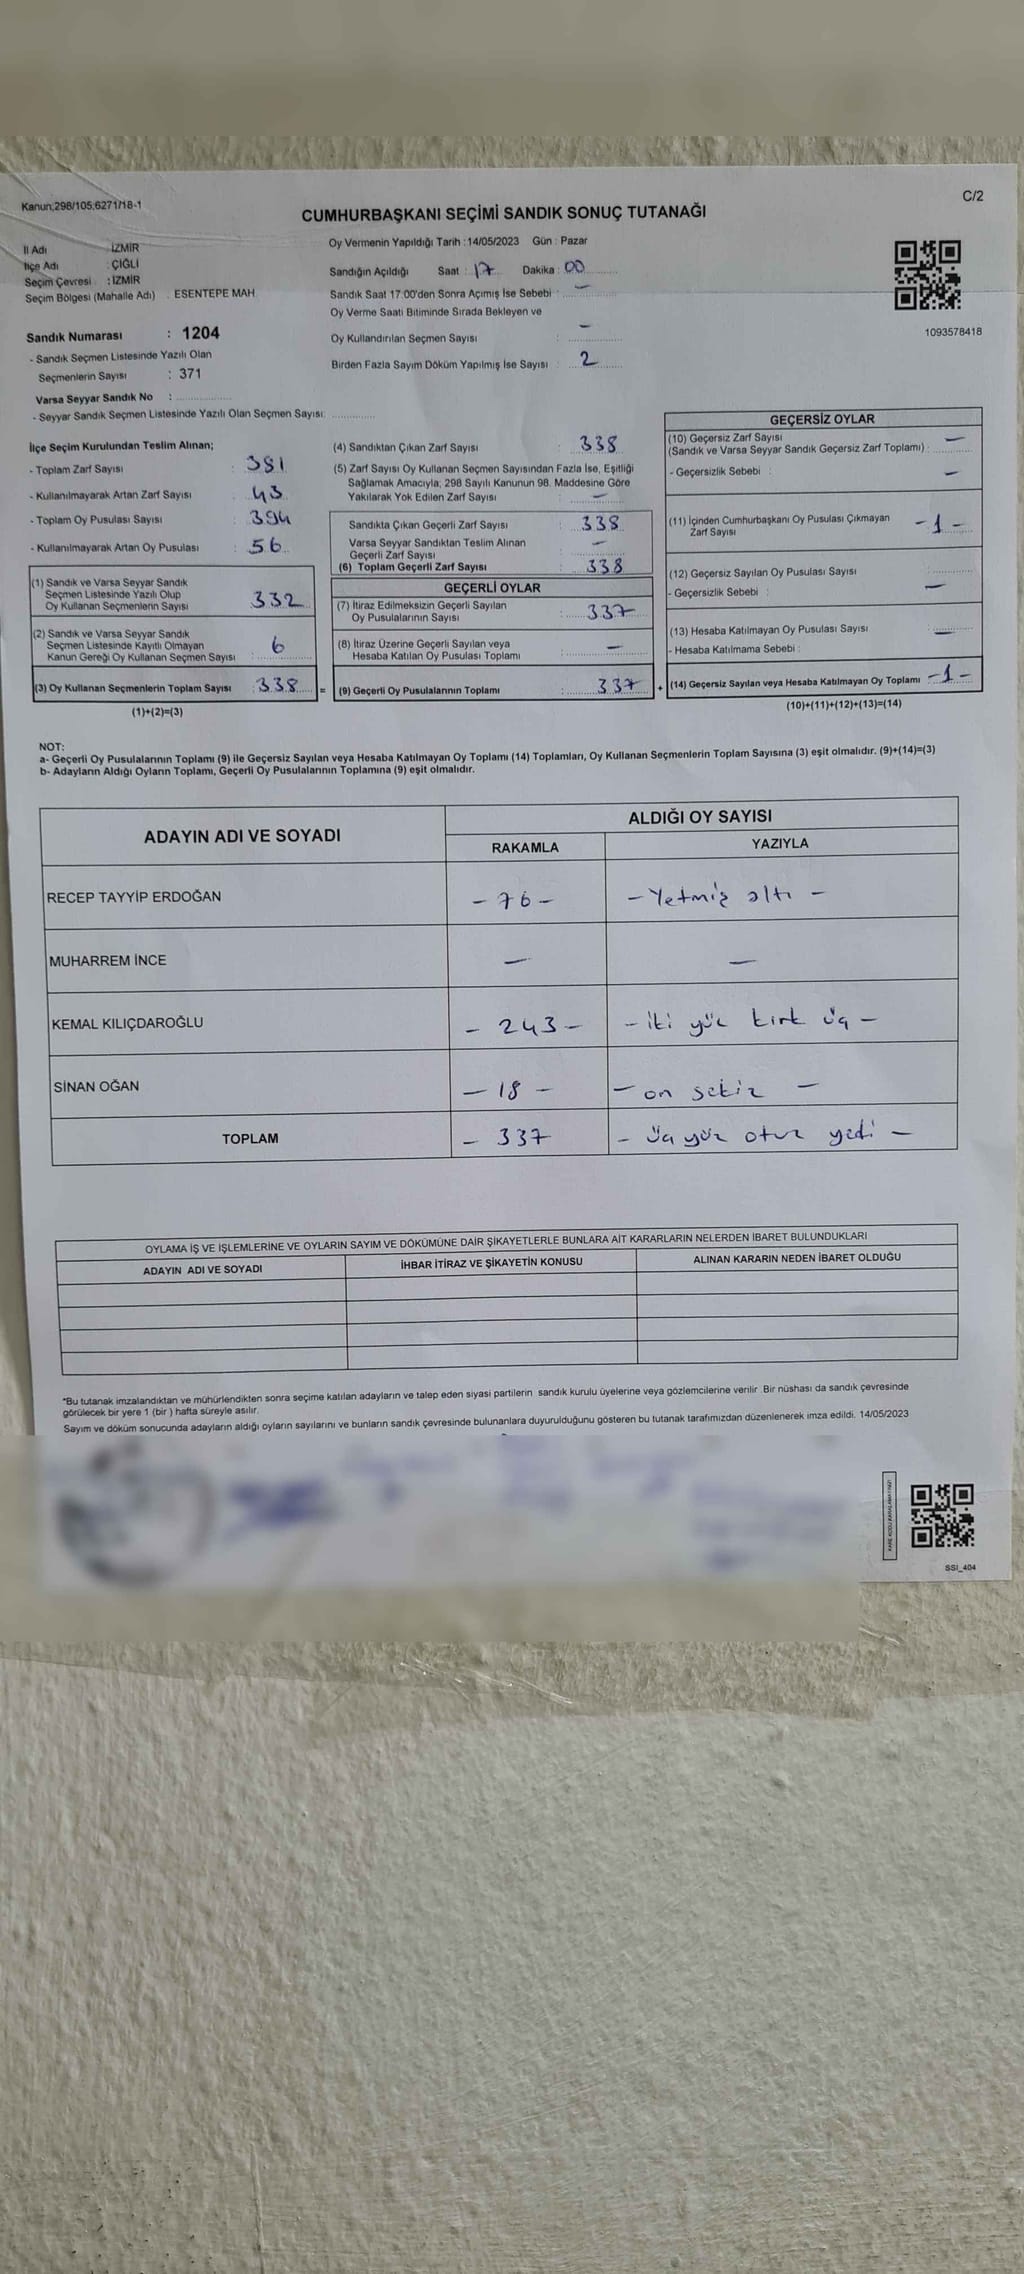 Kanun;298/105,6271/18-1
C/2
CUMHURBAŞKANI SEÇİMİ SANDIK SONUÇ TUTANAĞI
İl Adı : İZMİR
İlçe Adı : ÇİĞLİ
Seçim Çevresi : İZMİR
Seçim Bölgesi (Mahalle Adı) : ESENTEPE MAH.
Sandık Numarası : 1204
- Sandık Seçmen Listesinde Yazılı Olan
Seçmenlerin Sayısı : 371
Varsa Seyyar Sandık No :
- Seyyar Sandık Seçmen Listesinde Yazılı Olan Seçmen Sayısı:
Oy Vermenin Yapıldığı Tarih : 14/05/2023 Gün : Pazar
Sandığın Açıldığı Saat : 17 Dakika : 00
Sandık Saat 17.00'den Sonra Açımış İse Sebebi : —
Oy Verme Saati Bitiminde Sırada Bekleyen ve
Oy Kullandırılan Seçmen Sayısı : —
Birden Fazla Sayım Döküm Yapılmış İse Sayısı : 2
1093578418
İlçe Seçim Kurulundan Teslim Alınan;
- Toplam Zarf Sayısı : 381
- Kullanılmayarak Artan Zarf Sayısı : 43
- Toplam Oy Pusulası Sayısı : 394
- Kullanılmayarak Artan Oy Pusulası : 56
(1) Sandık ve Varsa Seyyar Sandık
Seçmen Listesinde Yazılı Olup
Oy Kullanan Seçmenlerin Sayısı 332
(2) Sandık ve Varsa Seyyar Sandık
Seçmen Listesinde Kayıtlı Olmayan
Kanun Gereği Oy Kullanan Seçmen Sayısı : 6
(3) Oy Kullanan Seçmenlerin Toplam Sayısı : 338 =
(1)+(2)=(3)
(4) Sandıktan Çıkan Zarf Sayısı : 338
(5) Zarf Sayısı Oy Kullanan Seçmen Sayısından Fazla İse, Eşitliği
Sağlamak Amacıyla, 298 Sayılı Kanunun 98. Maddesine Göre
Yakılarak Yok Edilen Zarf Sayısı : —
Sandıkta Çıkan Geçerli Zarf Sayısı : 338
Varsa Seyyar Sandıktan Teslim Alınan
Geçerli Zarf Sayısı : —
(6) Toplam Geçerli Zarf Sayısı : 338
GEÇERLİ OYLAR
(7) İtiraz Edilmeksizin Geçerli Sayılan
Oy Pusulalarının Sayısı : 337
(8) İtiraz Üzerine Geçerli Sayılan veya
Hesaba Katılan Oy Pusulası Toplamı : —
(9) Geçerli Oy Pusulalarının Toplamı : 337 +
GEÇERSİZ OYLAR
(10) Geçersiz Zarf Sayısı
(Sandık ve Varsa Seyyar Sandık Geçersiz Zarf Toplamı) : —
- Geçersizlik Sebebi : —
(11) İçinden Cumhurbaşkanı Oy Pusulası Çıkmayan
Zarf Sayısı - 1 -
(12) Geçersiz Sayılan Oy Pusulası Sayısı
- Geçersizlik Sebebi : —
(13) Hesaba Katılmayan Oy Pusulası Sayısı —
- Hesaba Katılmama Sebebi :
(14) Geçersiz Sayılan veya Hesaba Katılmayan Oy Toplamı - 1 -
(10)+(11)+(12)+(13)=(14)
NOT:
a- Geçerli Oy Pusulalarının Toplamı (9) ile Geçersiz Sayılan veya Hesaba Katılmayan Oy Toplamı (14) Toplamları, Oy Kullanan Seçmenlerin Toplam Sayısına (3) eşit olmalıdır. (9)+(14)=(3)
b- Adayların Aldığı Oyların Toplamı, Geçerli Oy Pusulalarının Toplamına (9) eşit olmalıdır.
ADAYIN ADI VE SOYADI
ALDIĞI OY SAYISI
RAKAMLA YAZIYLA
RECEP TAYYİP ERDOĞAN - 76 - - Yetmiş altı -
MUHARREM İNCE — —
KEMAL KILIÇDAROĞLU - 243 - - iki yüz kırk üç -
SİNAN OĞAN - 18 - - on sekiz -
TOPLAM - 337 - üç yüz otuz yedi -
OYLAMA İŞ VE İŞLEMLERİNE VE OYLARIN SAYIM VE DÖKÜMÜNE DAİR ŞİKAYETLERLE BUNLARA AİT KARARLARIN NELERDEN İBARET BULUNDUKLARI
ADAYIN ADI VE SOYADI İHBAR İTİRAZ VE ŞİKAYETİN KONUSU ALINAN KARARIN NEDEN İBARET OLDUĞU
*Bu tutanak imzalandıktan ve mühürlendikten sonra seçime katılan adayların ve talep eden siyasi partilerin sandık kurulu üyelerine veya gözlemcilerine verilir. Bir nüshası da sandık çevresinde
görülecek bir yere 1 (bir ) hafta süreyle asılır.
Sayım ve döküm sonucunda adayların aldığı oyların sayılarını ve bunların sandık çevresinde bulunanlara duyurulduğunu gösteren bu tutanak tarafımızdan düzenlenerek imza edildi. 14/05/2023
KARE KODU KARALAMAYINIZ!
SSI_404